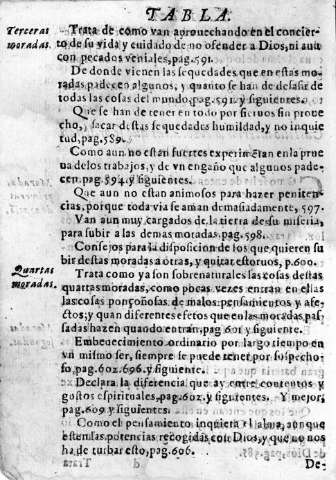 TABLA.
Terceras moradas.
Trata de como van aprouechando en el concier-
to de su vida y cuidado de no ofender a Dios, ni aun
con pecados veniales, pag. 591.
De donde vienen las sequedades que en estas mo-
radas padecen algunos, y quanto se han de desasir de
todas las cosas del mundo, pag. 591. y siguientes.
Que se han de tener en todo por sieruos sin proue
cho, y sacar destas sequedades humildad, y no inquie
tud, pag. 589.
Como aun no estan fuertes experimẽtan en la prue
ua de los trabajos, y de vn engaño que algunos pade-
cen. pag. 594. y siguientes.
Que aun no estan animosos para hazer peniten-
cias, porque toda via se aman demasiadamente, 597.
Van aun muy cargados de la tierra de su miseria,
para subir a las demas moradas. pag. 598.
Consejos para la disposicion de los que quieren su
bir destas moradas a otras, y quitar estoruos, p. 600.
Quartas moradas.
Trata como ya son sobrenaturales las cosas destas
quartas moradas, como pocas vezes entran en ellas
las cosas ponçoñosas de malos pensamientos y afe-
ctos; y quan diferentes efetos que en las moradas pas
sadas hazen quando entrán, pag. 601 y siguiente.
Embeuecimiento ordinario por largo tiempo en
vn mismo ser, siempre se puede tener por sospecho-
so, pag. 602. 696. y siguiente.
Declara la diferencia que ay entre contentos y
gostos espirituales, pag. 602. y siguientes. Y mejor,
pag. 609 y siguientes.
Como el pensamiento inquieta el alma, aunque
esten las potencias recogidas con Dios, y que no nos
ha de turbar esto, pag. 606.
De-